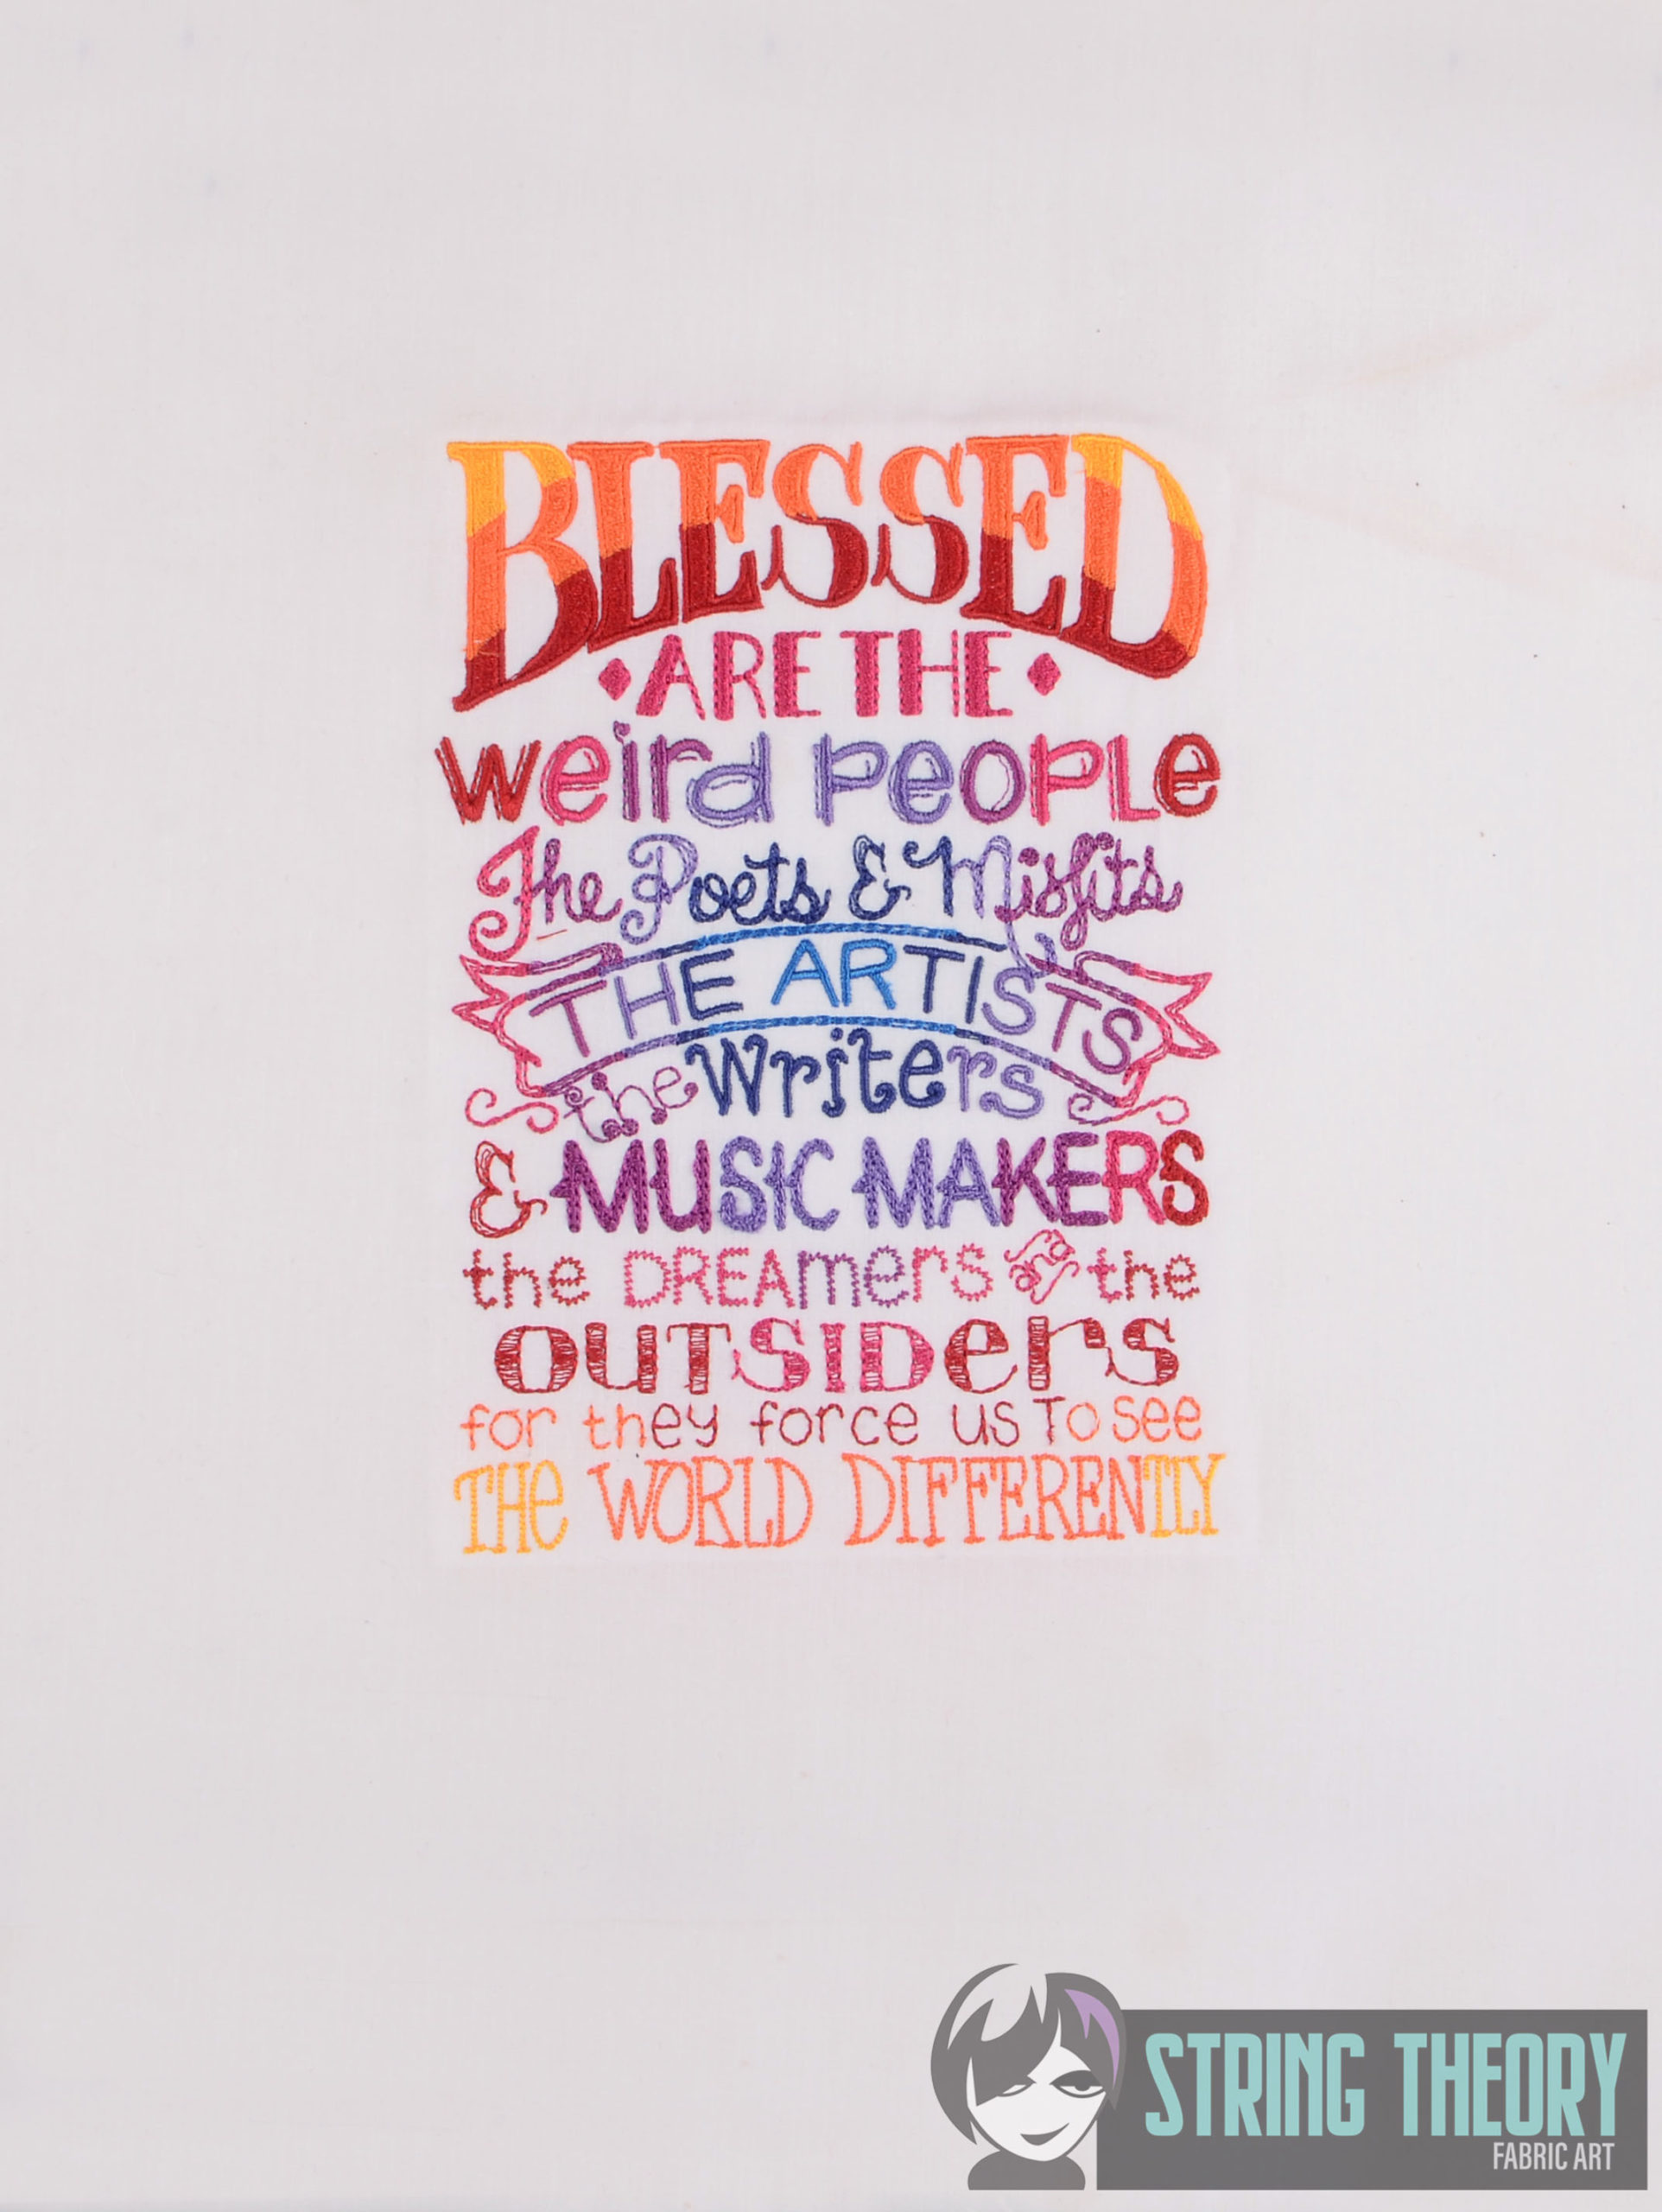 BLESSED
ARE THE
weird people
The Poets & Misfits
THE ARTISTS
the Writers
& MUSIC MAKERS
the DREAmers and the
OUTSIDers
for they force us To see
THe WORLD DIFFERENTLY
STRING THEORY
FABRIC ART